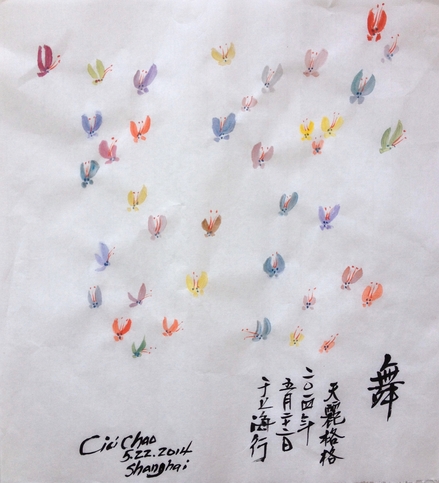 舞
天麗格格
二〇一四年
五月二十二日
于上海行
Cici Chao
5.22.2014
Shanghai